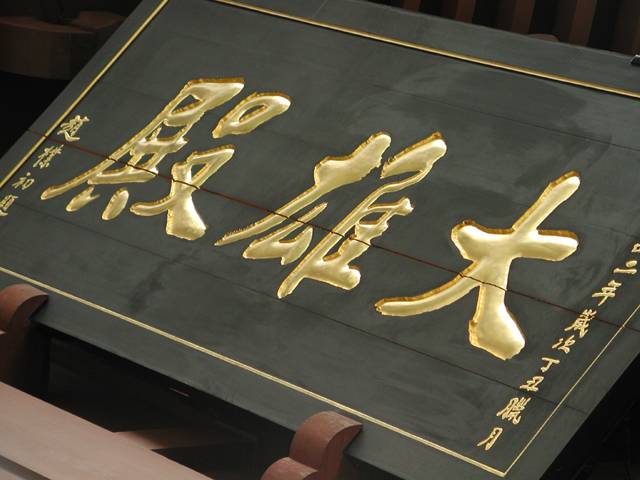 大雄殿
二三年歲次丁丑臘月
趙樸初題